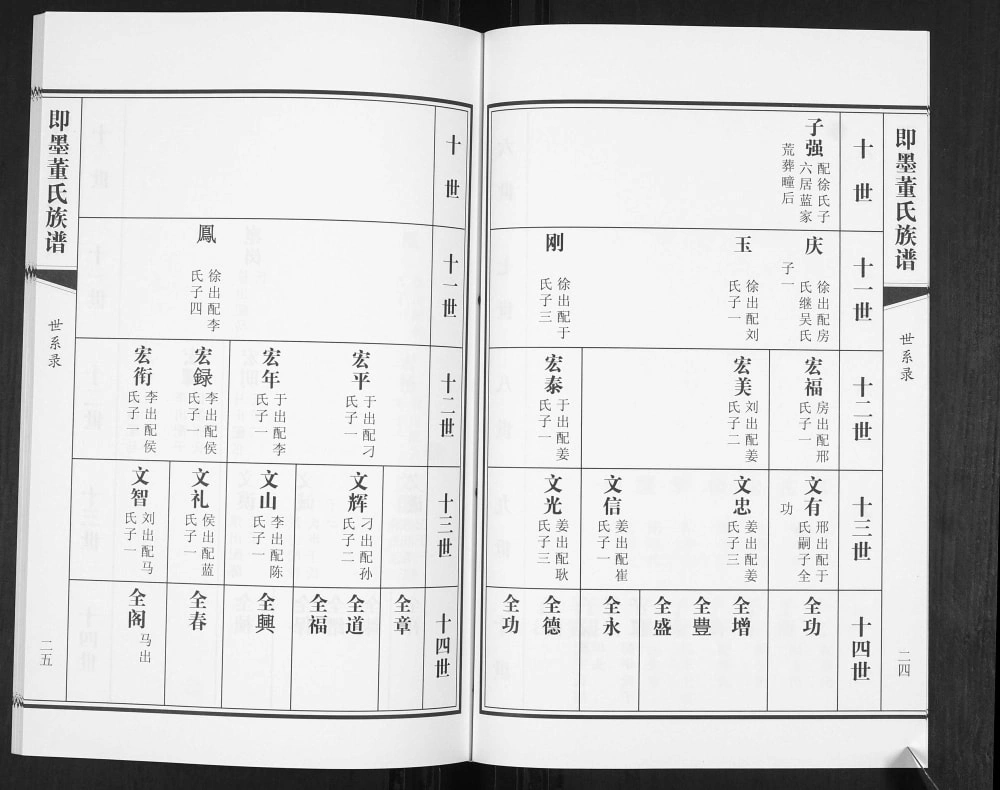 即墨董氏族谱
世系录
二四
十世
子强
配徐氏子
六居蓝家
荒葬疃后
十一世
庆
徐出配房
氏继吴氏
子一
玉
徐出配刘
氏子一
刚
徐出配于
氏子三
十二世
宏福
房出配邢
氏子一
宏美
刘出配姜
氏子二
宏泰
于出配姜
氏子一
十三世
文有
邢出配于
氏嗣子全
功
文忠
姜出配姜
氏子三
文信
姜出配崔
氏子一
文光
姜出配耿
氏子三
十四世
全功
全增
全豊
全盛
全永
全德
全功
十世
十一世
鳳
徐出配李
氏子四
十二世
宏平
于出配刁
氏子一
宏年
于出配李
氏子一
宏録
李出配侯
氏子一
宏衔
李出配侯
氏子一
十三世
文辉
刁出配孙
氏子二
文山
李出配陈
氏子一
文礼
侯出配蓝
氏子一
文智
刘出配马
氏子一
十四世
全章
全道
全福
全興
全春
全阁
马出
即墨董氏族谱
世系录
二五